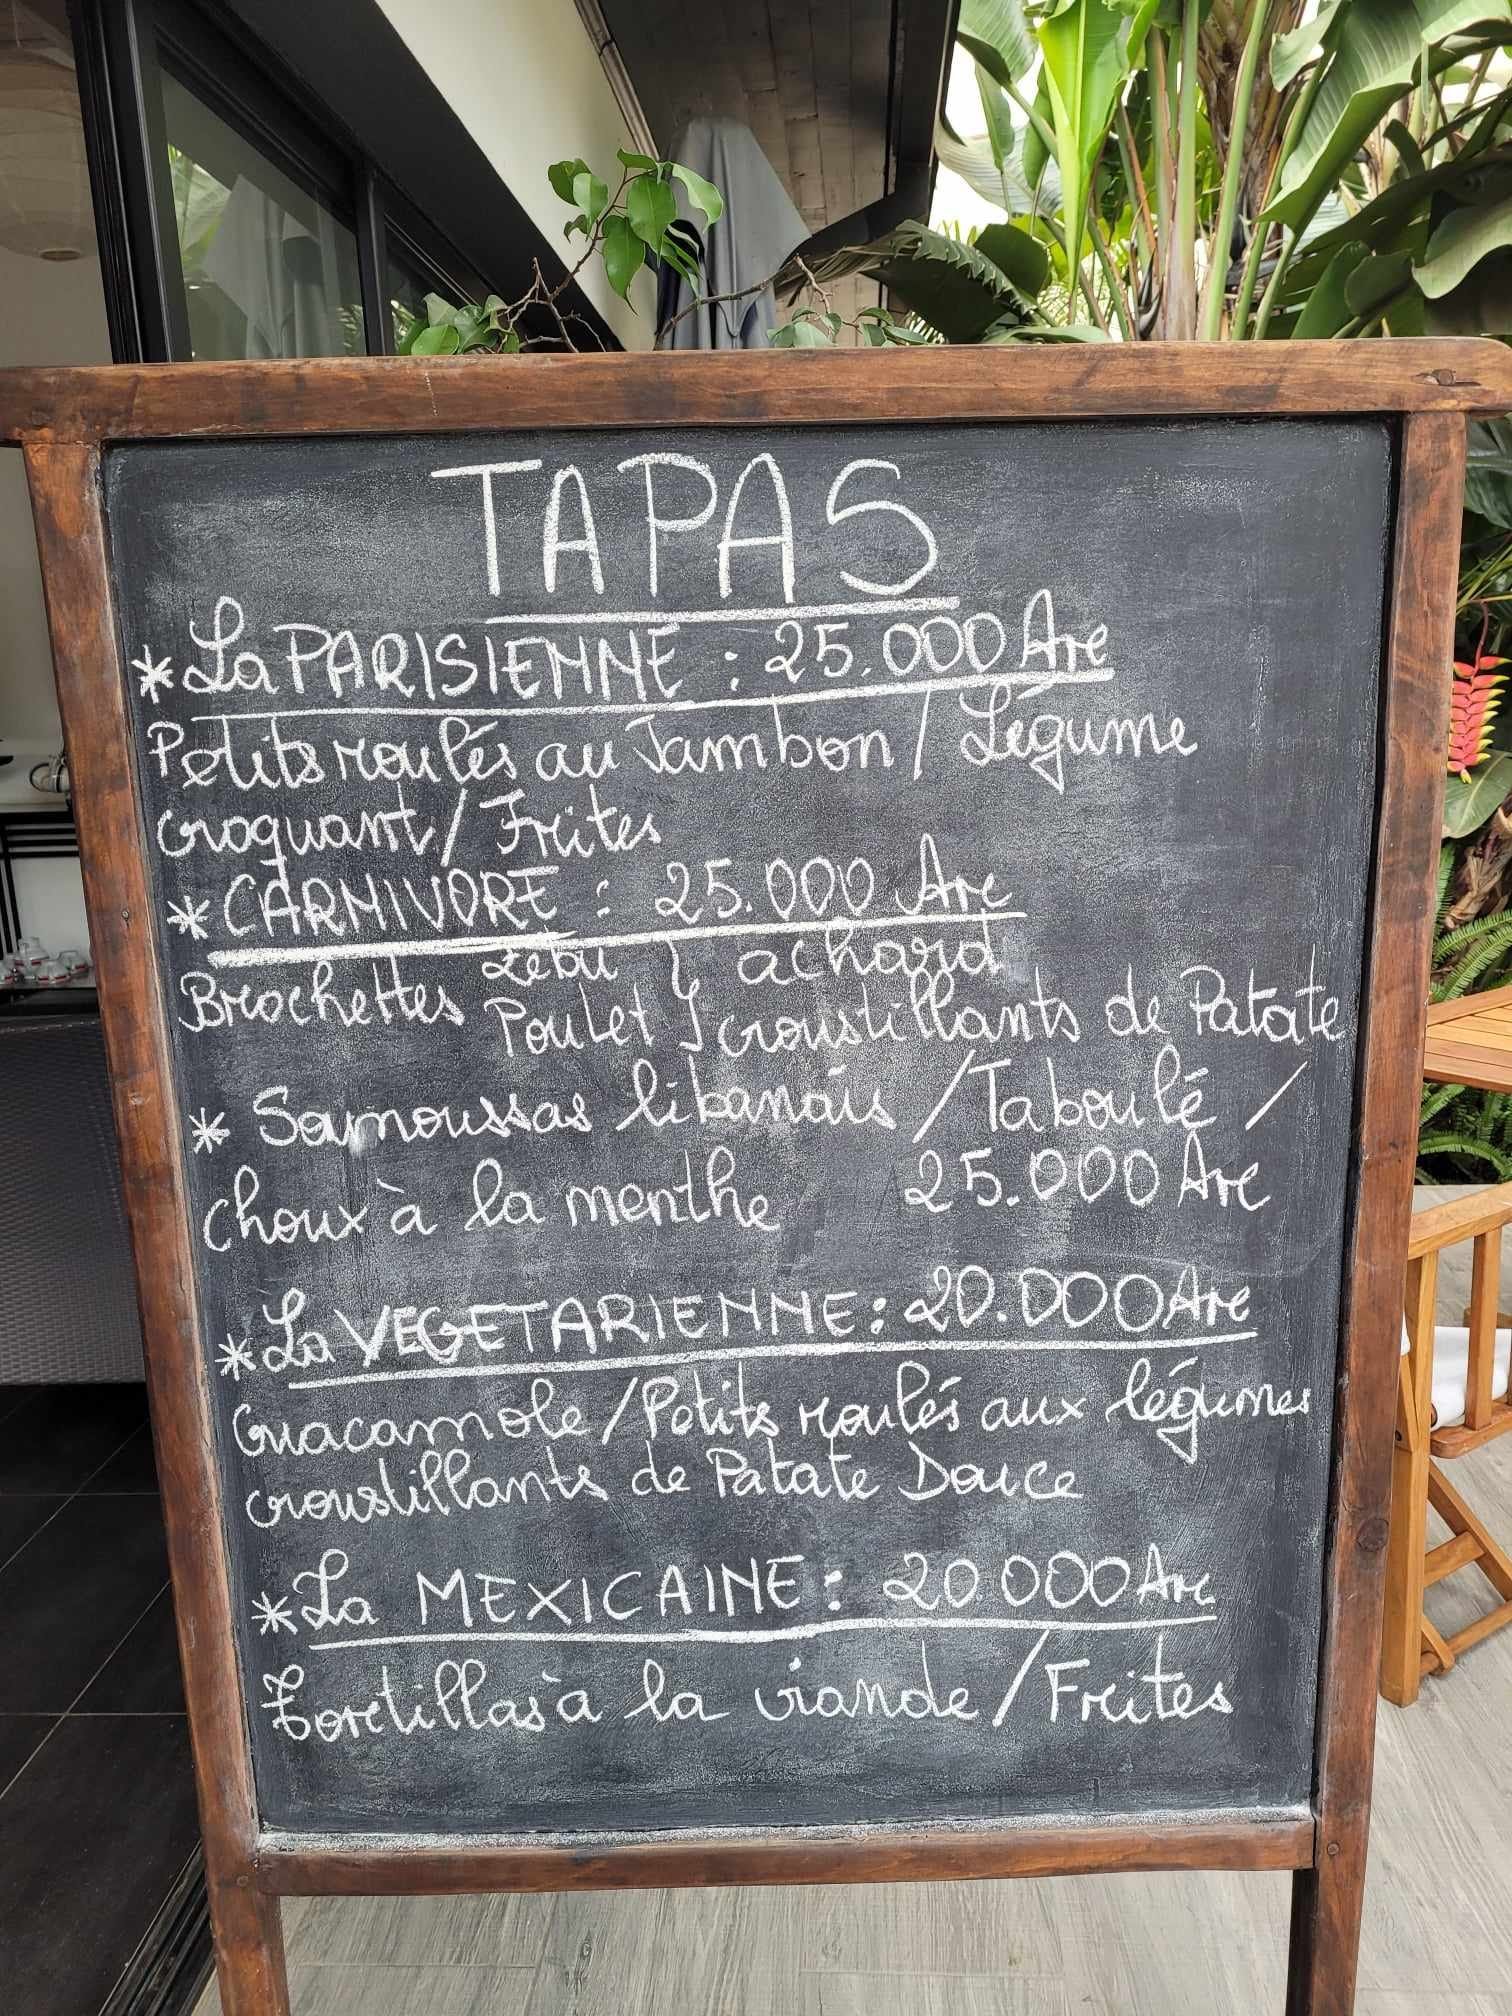 TAPAS
* La PARISIENNE : 25.000 Are
Petits roulés au Jambon / Légume
croquant / Frites
* CARNIVORE : 25.000 Are
Brochettes Zébu } achard
Poulet } croustillants de Patate
* Samoussas libanais / Taboulé /
choux à la menthe 25.000 Are
* La VEGETARIENNE : 20.000 Are
Guacamole / Petits roulés aux légumes
croustillants de Patate Douce
* La MEXICAINE : 20.000 Are
Tortillas à la viande / Frites